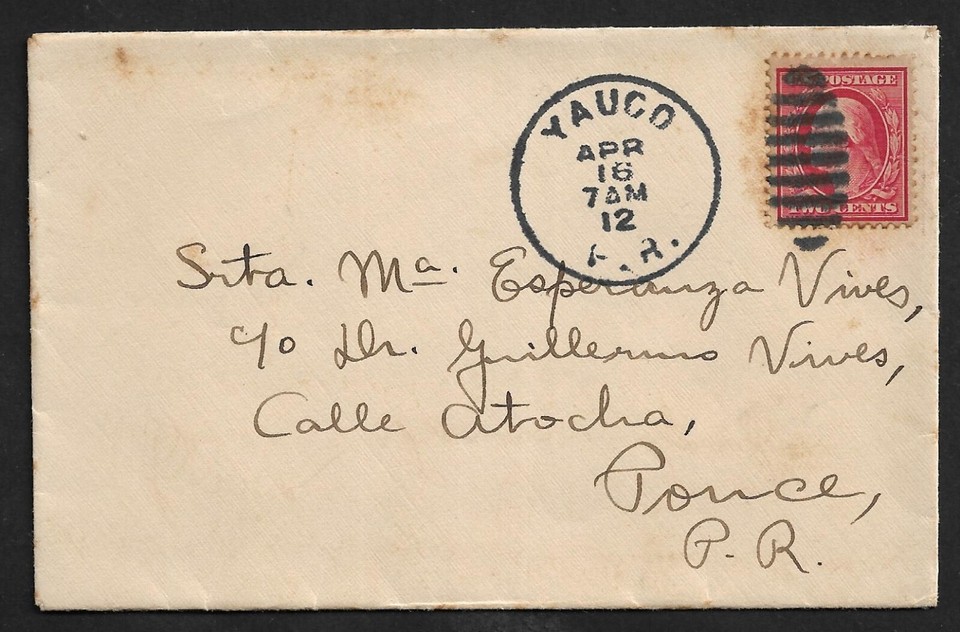 YAUCO
APR
16
7 AM
12
P. R.
POSTAGE
TWO CENTS
Srta. Ma. Esperanza Vives,
c/o Dr. Guillermo Vives,
Calle Atocha,
Ponce,
P. R.